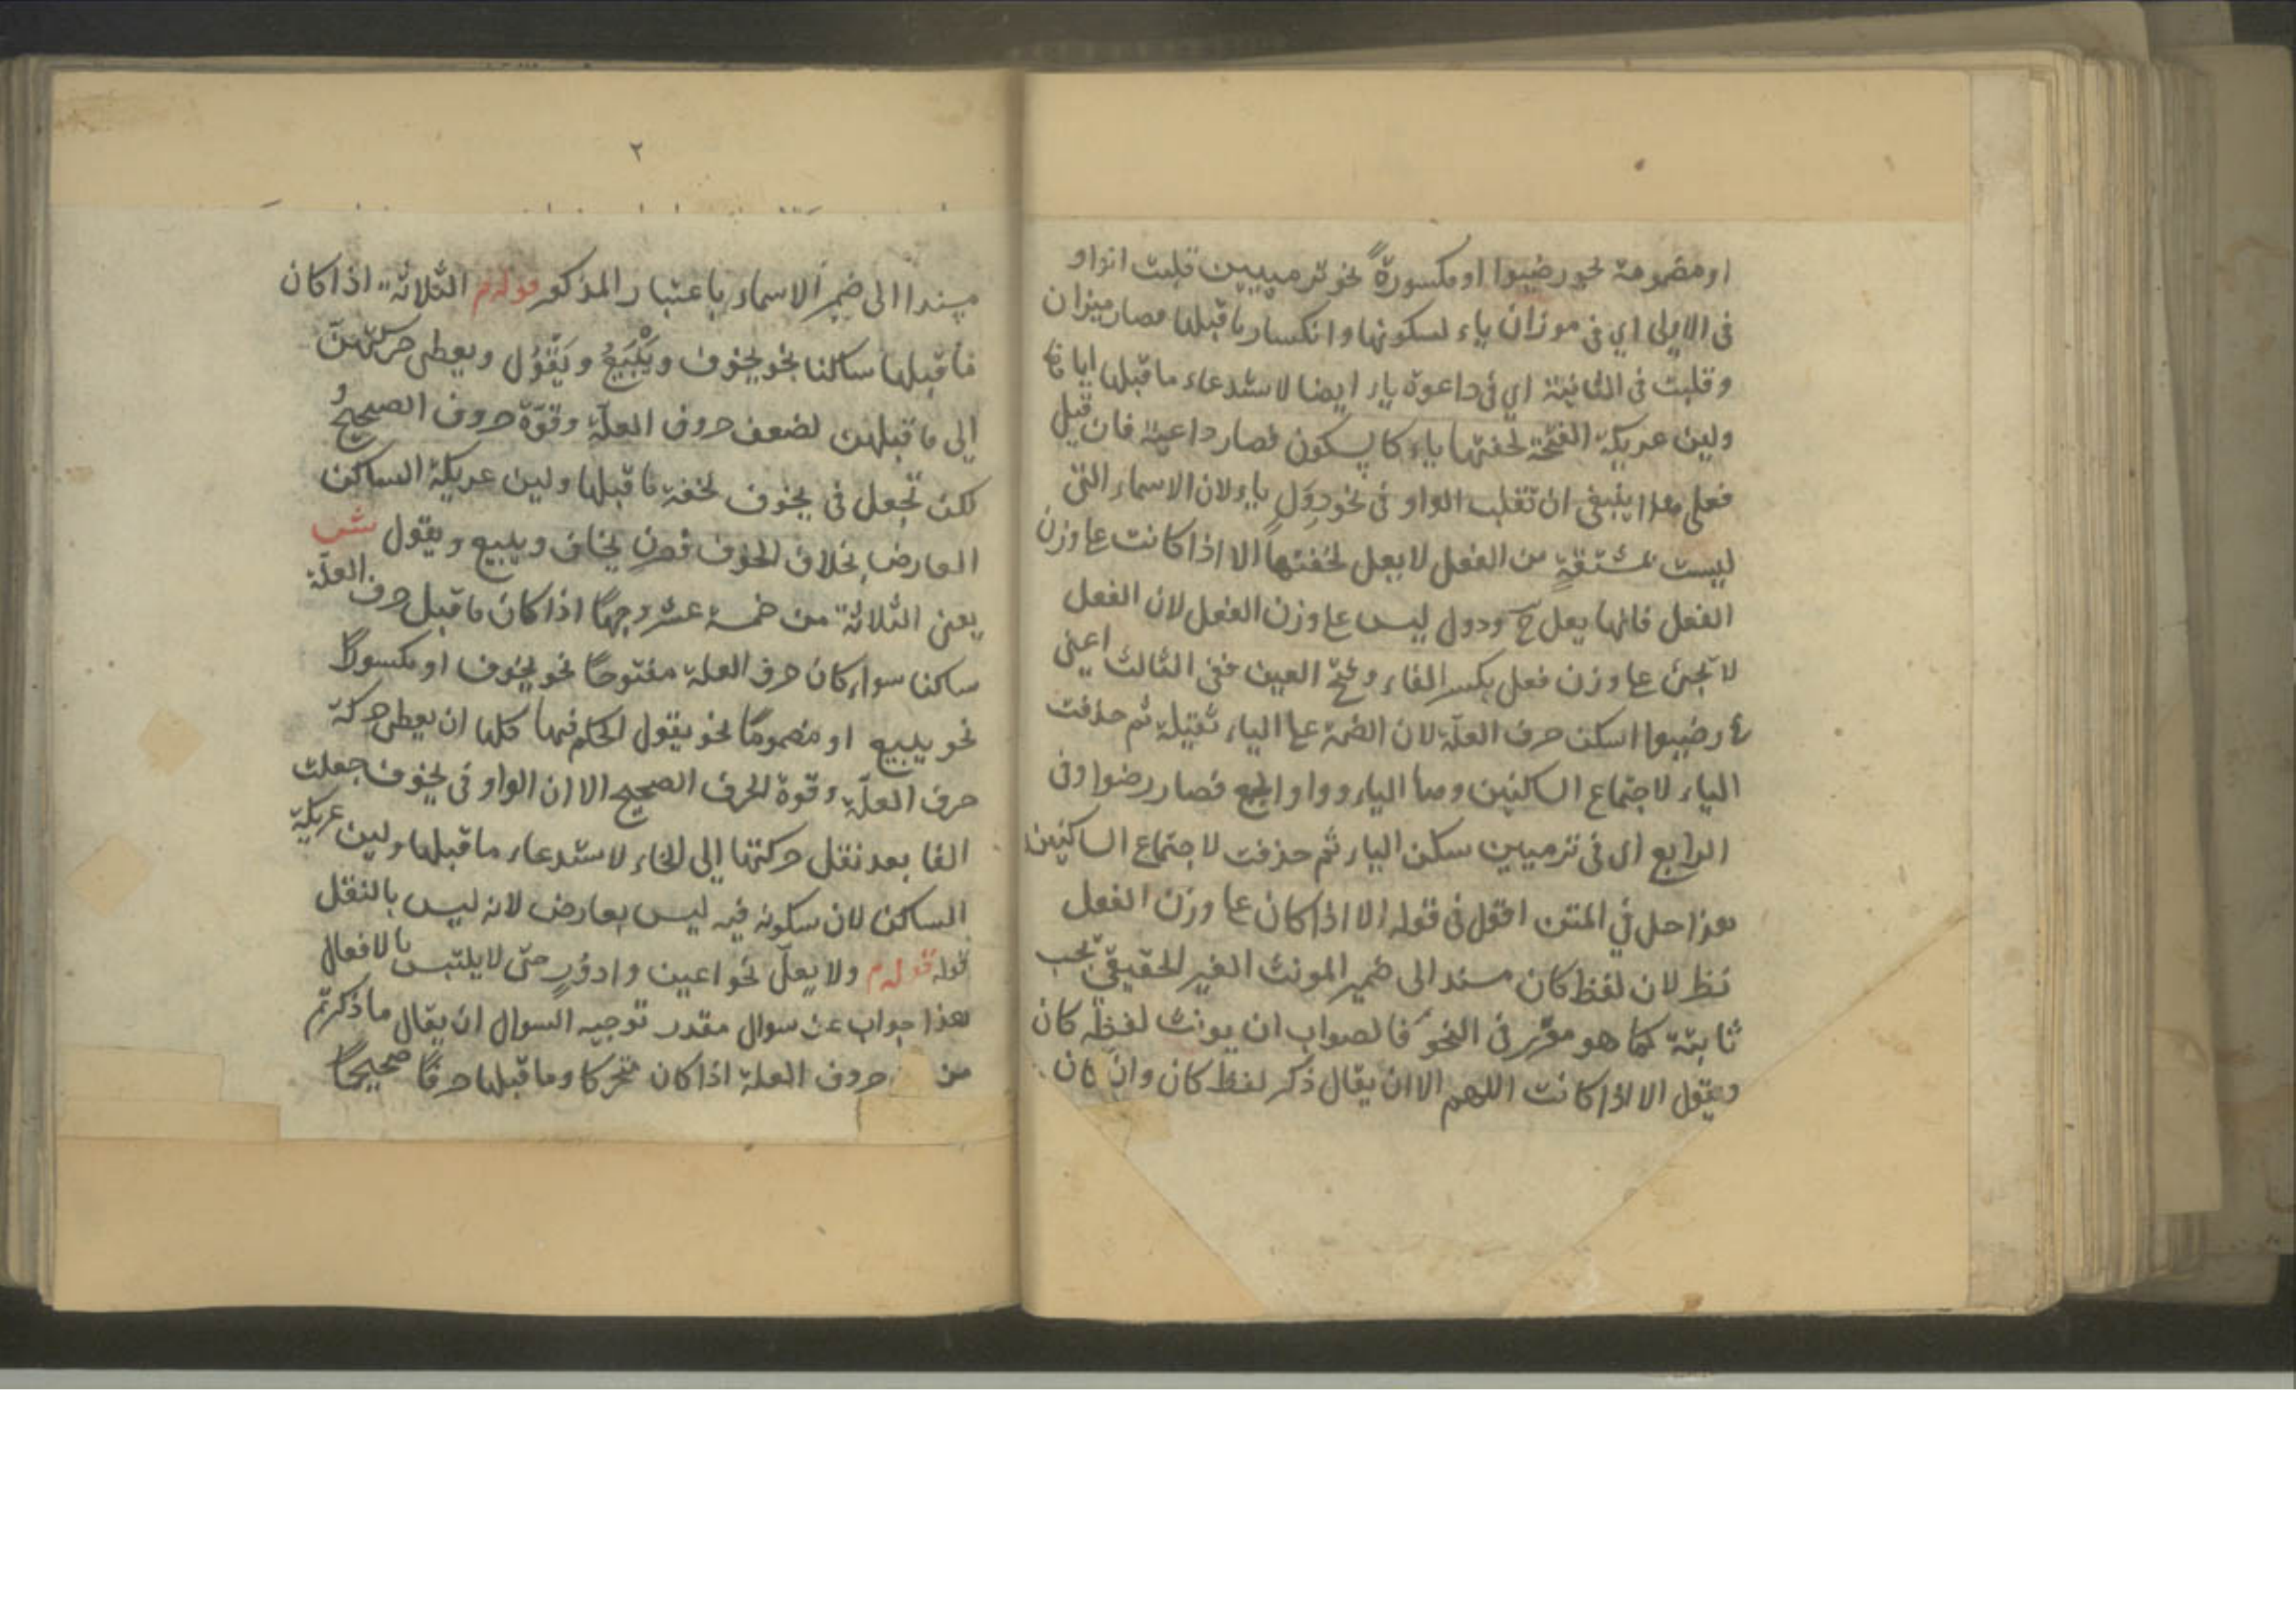 او مضمومة نحو رضيوا او مكسورةً نحو ترميين قلبت الواو
فى الاولى اي فى موزان ياء لسكونها وانكسار ما قبلها فصار ميزان
وقلبت فى الثانية اي فى داعوة ياء ايضا لاستدعاء ما قبلها اياها
ولين عريكة الفتحة لخفتها ياء كالسكون فصار داعية فان قيل
فعلى هذا ينبغى ان تقلب الواو فى نحو دِوَلٍ ياء لان الاسماء التى
ليست بمشتقةٍ من الفعل لا يعل لخفتها الا اذا كانت عا وزن
الفعل فانها يعل ح ودول ليس عا وزن الفعل لان الفعل
لا تجئ عا وزن فعل بكسر الفاء وفتح العين ففى الثالث اعنى
رضيوا اسكن حرف العلّة لان الضمة عا الياء ثقيلة ثم حذفت
الياء لاجتماع الساكنين وهما الياء وواو الجمع فصار رضوا وفى
الرابع اى فى ترميين سكن الياء ثم حذفت لاجتماع الساكنين
هذا حل في المتن اقول فى قوله الا اذا كان عا وزن الفعل
نظ لان لفظ كان مسند الى ضمير المونث الغير الحقيقى يجب
ثابتة كما هو مقرر فى النحو فالصواب ان يونث لفظه كان
ويقول الا اذا كانت اللهم الا ان يقال ذكر لفظ كان وان كان
٢
مسندا الى ضمير الاسماء باعتبار المذكور قوله م الثلاثة اذا كان
ما قبلها ساكنا نحو يخوف ويَبْيِعُ ويَقْوُل ويعطى حركتهنّ
إلى ما قبلهن لضعف حروف العلّة وقوّة حروف الصحيحُ
لكن تجعل فى يخوف لخفة ما قبلها ولين عريكة الساكن
العارض بخلاف الخوف فصرن يخاف ويبيع ويقول ش
يعنى الثلاثة من خمسة عشر وجهًا اذا كان ما قبل حرف العلّة
ساكنا سواء كان حرف العلة مفتوحًا نحو يخوف او مكسورًا
نحو يبيع او مضمومًا نحو يقول الحكم فيها كلها ان يعطى حركة
حرف العلّة وقوة الحرف الصحيح الا ان الواو فى يخوف جعلت
الفا بعد نقل حركتها إلى الخاء لاستدعاء ما قبلها ولين عريكة
الساكن لان سكونه فيه ليس بعارض لانه ليس بالنقل
قوله قوله م ولا يعلّ نحو اعين وادوُرٍ حتّى لا يلتبس بالافعال
هذا جواب عن سوال مقدر توجيه السوال ان يقال ما ذكرتم
من حروف العلة اذا كان متحركا وما قبلها حرفًا صحيحًا